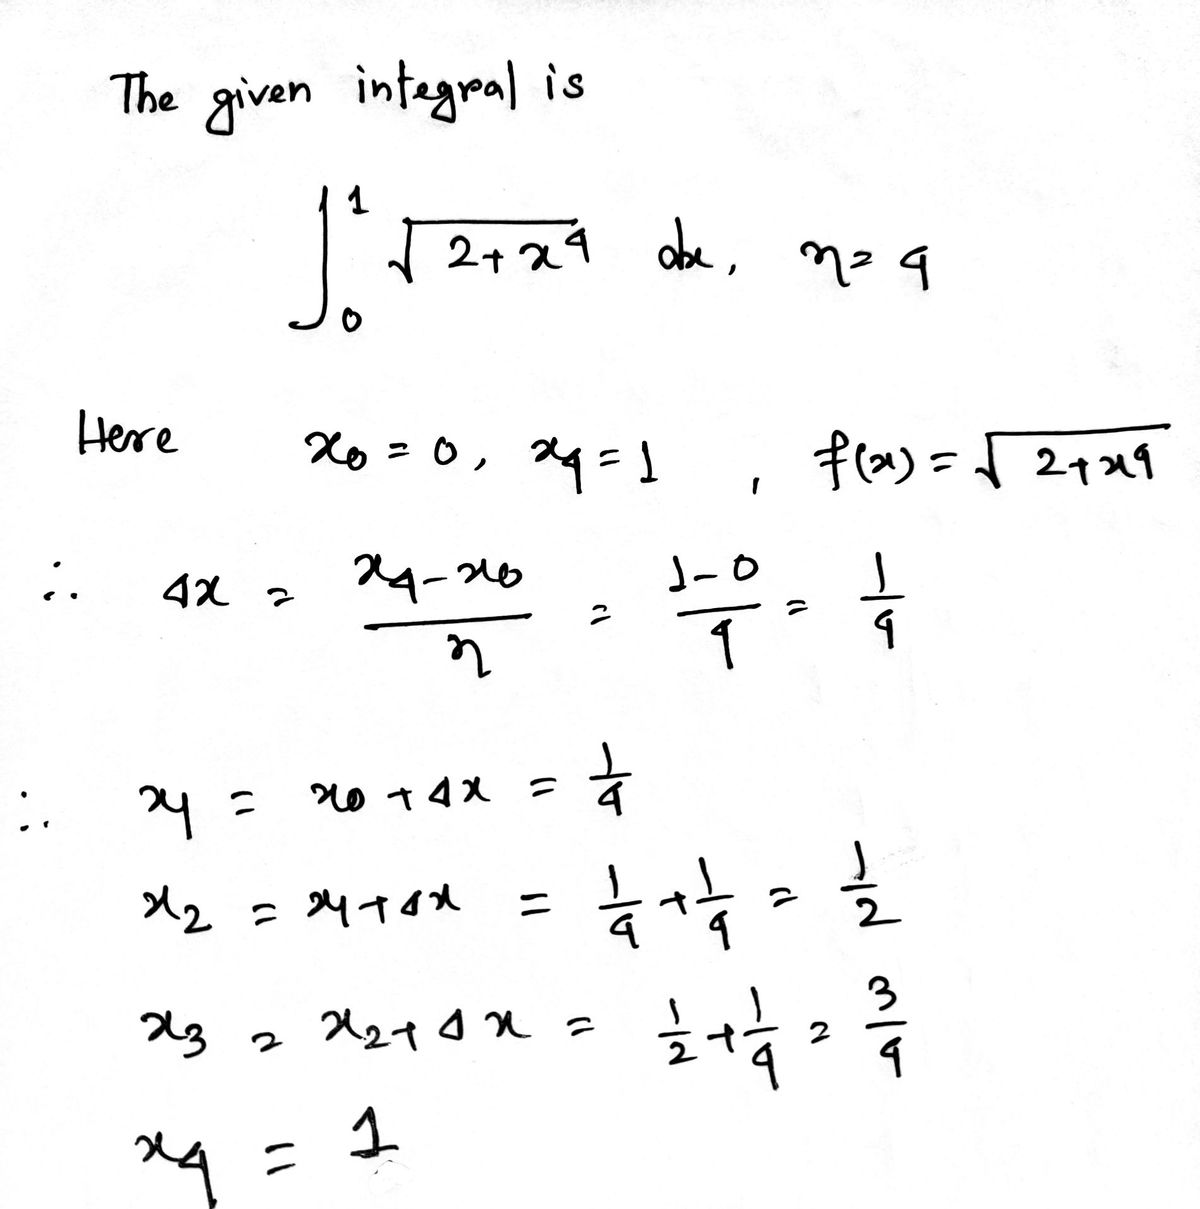 The given integral is
∫₀¹ √(2+x⁴) dx, n = 4
Here x₀ = 0, x₄ = 1, f(x) = √(2+x⁴)
∴ Δx = (x₄-x₀)/n = (1-0)/4 = 1/4
∴ x₁ = x₀ + Δx = 1/4
x₂ = x₁+Δx = 1/4+1/4 = 1/2
x₃ = x₂+Δx = 1/2+1/4 = 3/4
x₄ = 1